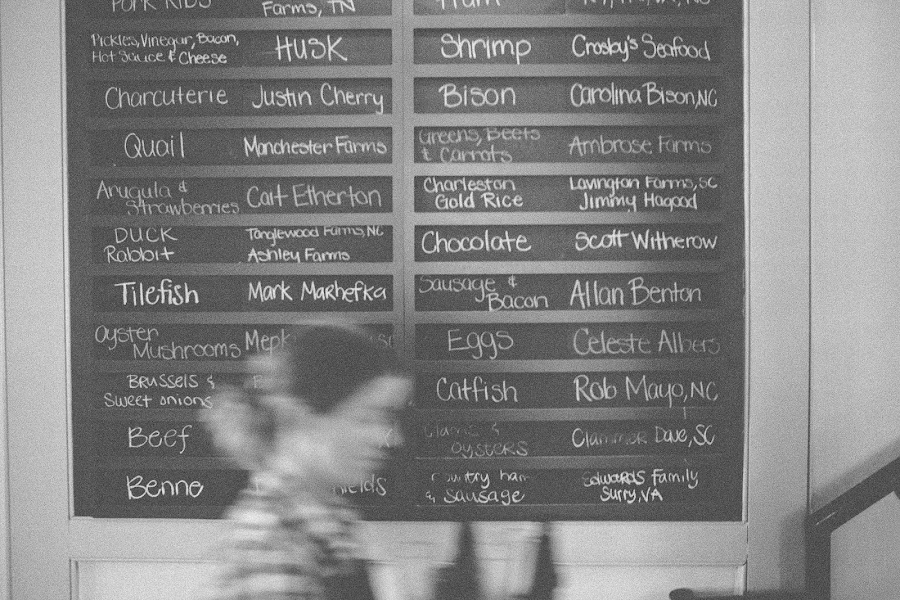 PORK RIBS
Farms, TN
Pickles, Vinegar, Bacon,
Hot Sauce & Cheese
HUSK
Charcuterie Justin Cherry
Quail Manchester Farms
Arugula &
Strawberries
Cait Etherton
DUCK
Rabbit
Tanglewood Farms, NC
Ashley Farms
Tilefish Mark Marhefka
Oyster
Mushrooms
BRUSSELS &
Sweet onions
Beef
Benne
Ham
Shrimp Crosby's Seafood
Bison Carolina Bison, NC
Greens, Beets
& Carrots
Ambrose Farms
Charleston
Gold Rice
Lavington Farms, SC
Jimmy Hagood
Chocolate Scott Witherow
Sausage &
Bacon
Allan Benton
Eggs Celeste Albers
Catfish Rob Mayo, NC
Clams &
OYSTERS
Clammer Dave, SC
Country ham
& Sausage
Edwards Family
Surry, VA